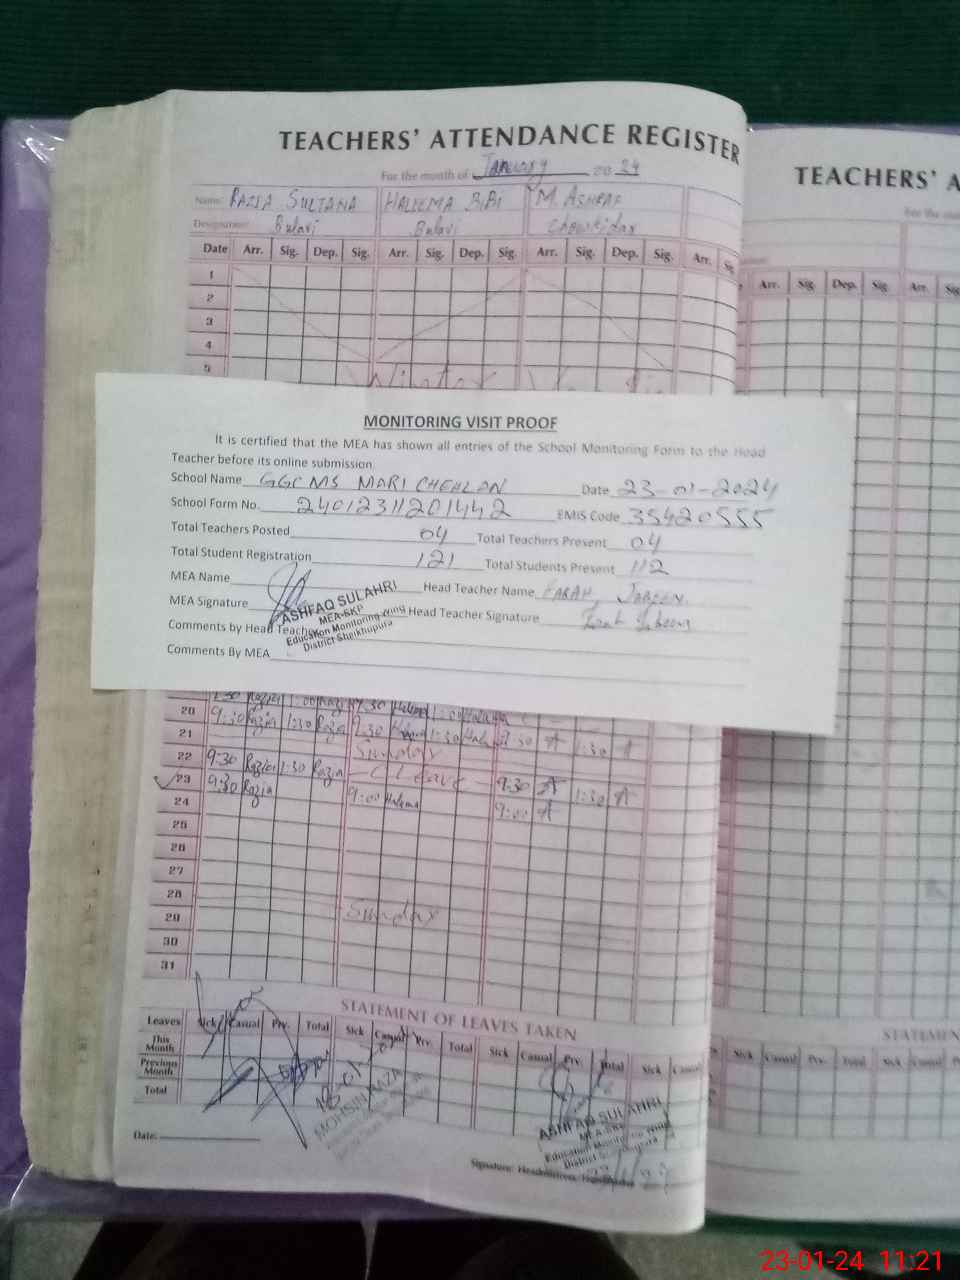 TEACHERS' ATTENDANCE REGISTER
For the month of January 2024
Name: RAZIA SULTANA HALEEMA BIBI M. ASHRAF
Designation:
Date Arr. Sig. Dep. Sig. Arr. Sig. Dep. Sig. Arr. Sig. Dep. Sig. Arr. Sig.
1
2
3
4
5
Winter
MONITORING VISIT PROOF
It is certified that the MEA has shown all entries of the School Monitoring Form to the Head
Teacher before its online submission.
School Name GGCMS MARI CHEHLAN Date 23-01-2024
School Form No. 24012311201442 EMIS Code 35420555
Total Teachers Posted 04 Total Teachers Present 04
Total Student Registration 121 Total Students Present 112
MEA Name Head Teacher Name FARAH JABEEN
MEA Signature Head Teacher Signature
Comments by Head Teacher
Comments By MEA
ASHFAQ SULAHRI
MEA-SKP
Education Monitoring Wing
District Sheikhupura
20 9:30 Razia 1:30 Razia 9:30 1:30 9:30 A 1:30 A
21 Sunday
22 9:30 Razia 1:30 Razia - C Leave - 9:30 A 1:30 A
23 9:30 Razia 9:00 Halema 9:00 A
24
25
26
27
28 Sunday
29
30
31
STATEMENT OF LEAVES TAKEN
Leaves Sick Casual Prv. Total Sick Casual Prv. Total Sick Casual Prv. Total Sick Casual
This Month
Previous Month
Total
MOHSIN RAZA
ASHFAQ SULAHRI
MEA-SKP
Education Monitoring Wing
District Sheikhupura
Date:
Signature: Headmistress/
TEACHERS' A
Arr. Sig. Dep. Sig. Arr. Sig
STATEMEN
Sick Casual Prv. Total Sick Casual Prv. To
23-01-24 11:21